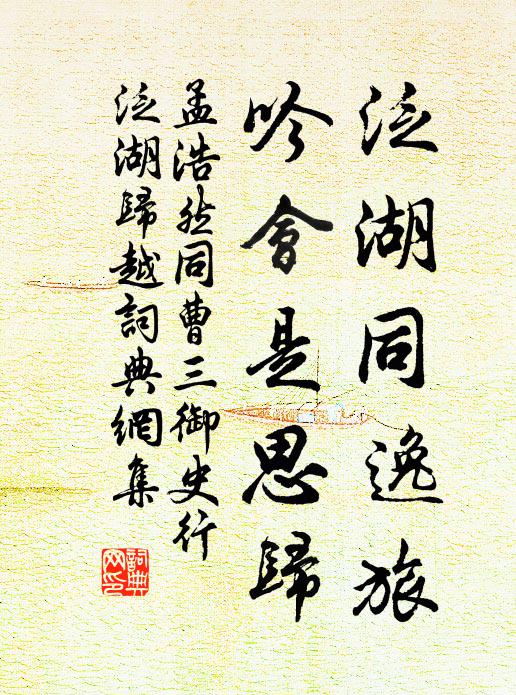 泛湖同逸旅
吟會是思歸
孟浩然同曹三御史行
泛湖歸越詞典網集
詞典
网印